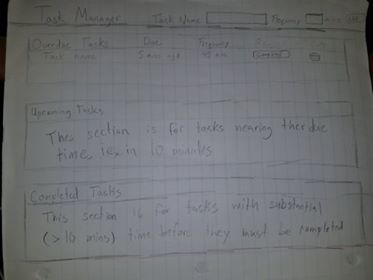 Task Manager Task Name Frequency mins
Overdue Tasks Due Frequency
Task name 5 mins ago 45 min Complete
Upcoming Tasks
This section is for tasks nearing their due
time, i.e. in 10 minutes
Completed Tasks
This section is for tasks with substantial
(>10 mins) time before they must be completed